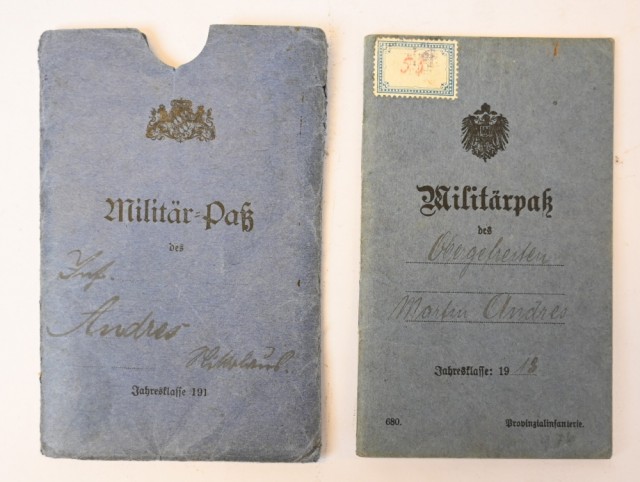 Militär-Paß
des
Inf.
Andres
Nikolaus.
Jahresklasse 191
Militärpaß
des
Obergefreiten
Martin Andres
Jahresklasse: 1918
680. Provinzialinfanterie.